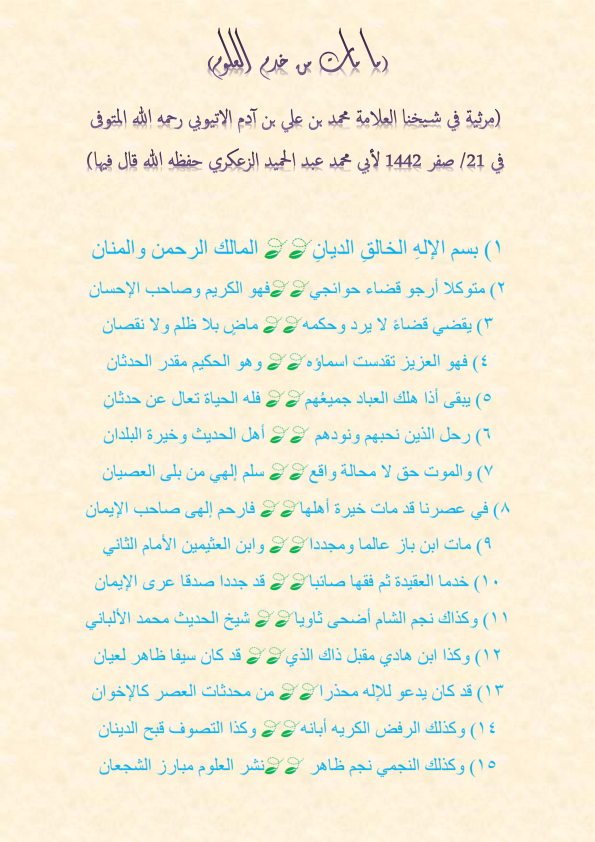 (ما مات من خدم العلوم)
(مرثية في شيخنا العلامة محمد بن علي بن آدم الاتيوبي رحمه الله المتوفى
في 21/ صفر 1442 لأبي محمد عبد الحميد الزعكري حفظه الله قال فيها)
١) بسم الإلهِ الخالقِ الديانِ المالك الرحمن والمنان
٢) متوكلا أرجو قضاء حوائجي فهو الكريم وصاحب الإحسان
٣) يقضي قضاءً لا يرد وحكمه ماضٍ بلا ظلم ولا نقصان
٤) فهو العزيز تقدست اسماؤه وهو الحكيم مقدر الحدثان
٥) يبقى أذا هلك العباد جميعُهم فله الحياة تعال عن حدثانِ
٦) رحل الذين نحبهم ونودهم أهل الحديث وخيرة البلدان
٧) والموت حق لا محالة واقع سلم إلهي من بلى العصيان
٨) في عصرنا قد مات خيرة أهلها فارحم إلهى صاحب الإيمان
٩) مات ابن باز عالما ومجددا وابن العثيمين الأمام الثاني
١٠) خدما العقيدة ثم فقها صائبا قد جددا صدقا عرى الإيمان
١١) وكذاك نجم الشام أضحى ثاويا شيخ الحديث محمد الألباني
١٢) وكذا ابن هادي مقبل ذاك الذي قد كان سيفا ظاهر لعيان
١٣) قد كان يدعو للإله محذرا من محدثات العصر كالإخوان
١٤) وكذلك الرفض الكريه أبانه وكذا التصوف قبح الدينان
١٥) وكذلك النجمي نجم ظاهر نشر العلوم مبارز الشجعان